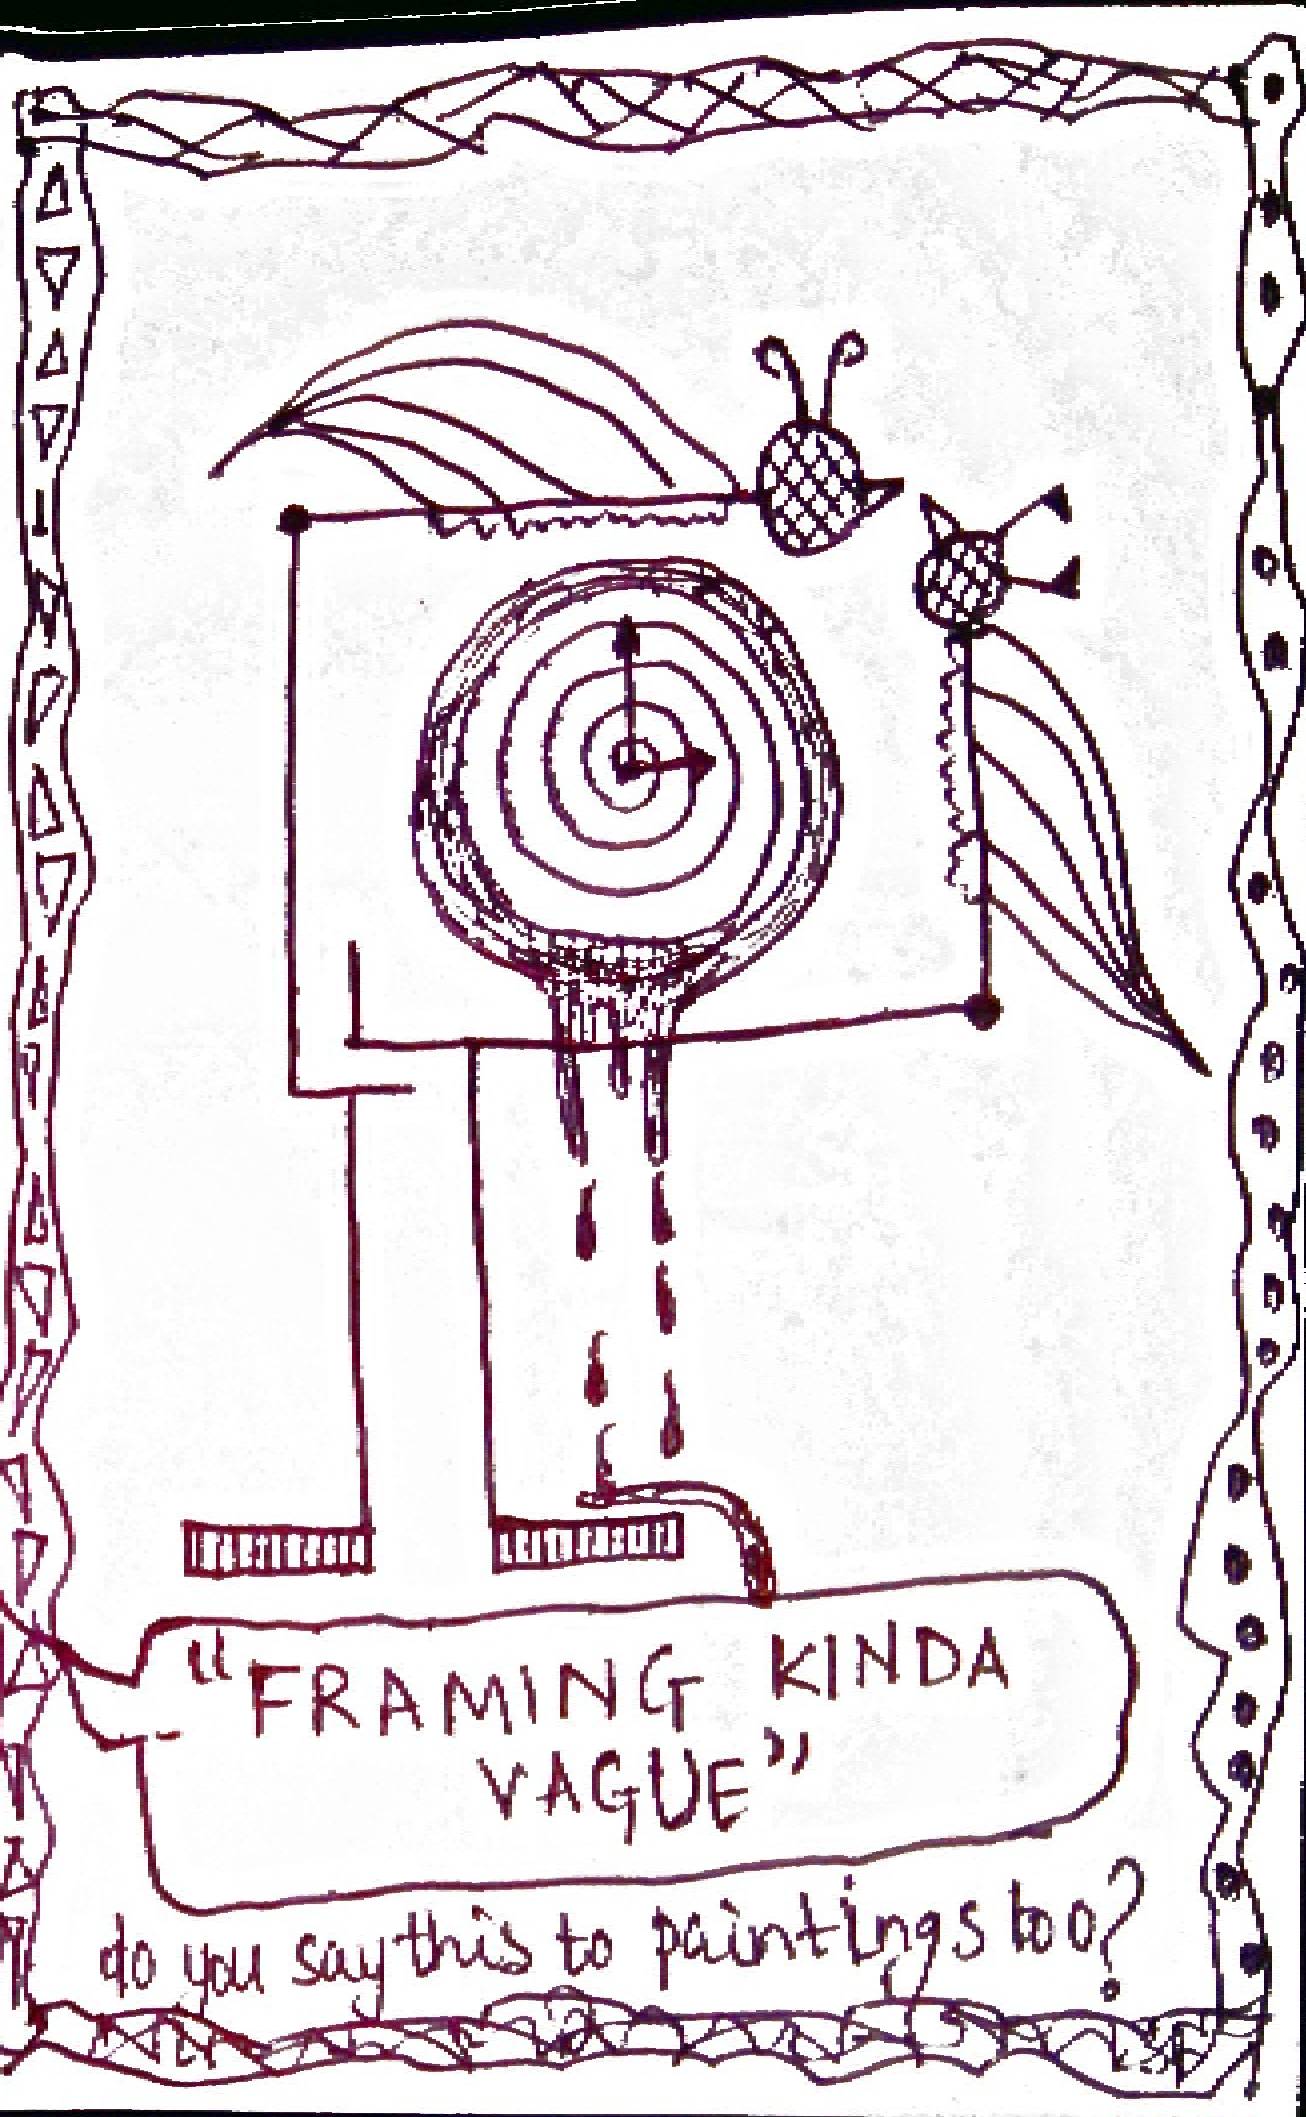 "FRAMING KINDA
VAGUE"
do you say this to paintings too?